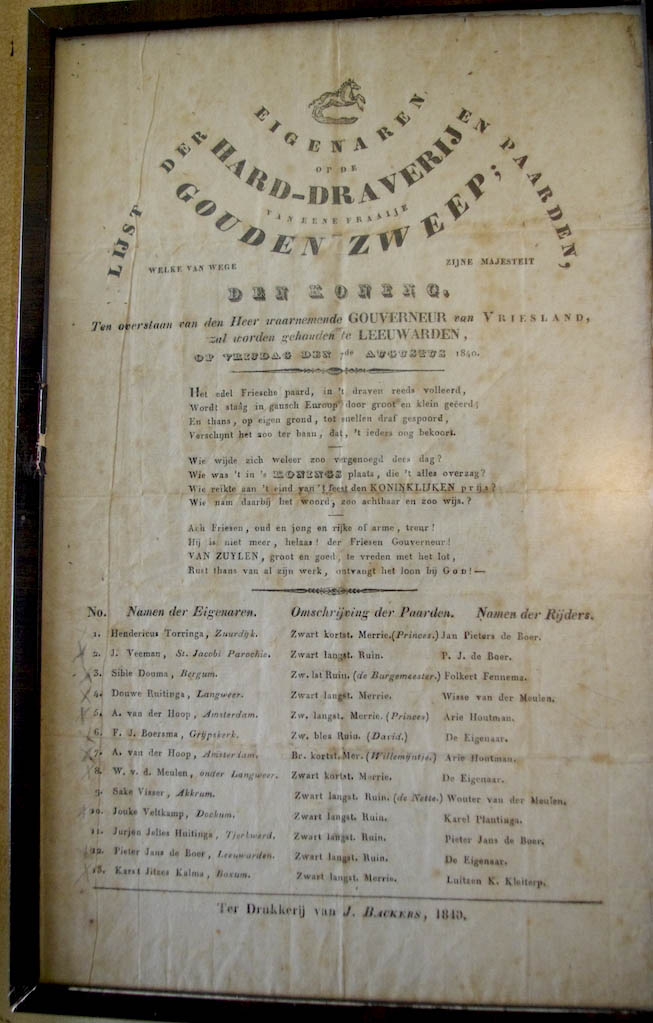 LIJST DER EIGENAREN EN PAARDEN,
OP DE
HARD-DRAVERIJ
VAN EENE FRAAIJE
GOUDEN ZWEEP;
WELKE VAN WEGE ZIJNE MAJESTEIT
DEN KONING,
Ten overstaan van den Heer waarnemende GOUVERNEUR van VRIESLAND,
zal worden gehouden te LEEUWARDEN,
OP VRIJDAG DEN 7de AUGUSTUS 1840.
Het edel Friesche paard, in 't draven reeds volleerd,
Wordt staåg in gansch Europ' door groot en klein geëerd;
En thans, op eigen grond, tot snellen draf gespoord,
Verschijnt het zoo ter baan, dat, 't ieders oog bekoort.
Wie wijde zich weleer zoo vergenoegd dees dag?
Wie was 't in 's KONINGS plaats, die 't alles overzag?
Wie reikte aan 't eind van 't feest den KONINKLIJKEN prijs?
Wie nam daarbij het woord, zoo achtbaar en zoo wijs?
Ach Friesen, oud en jong en rijke of arme, treur!
Hij is niet meer, helaas! der Friesen Gouverneur!
VAN ZUYLEN, groot en goed, te vreden met het lot,
Rust thans van al zijn werk, ontvangt het loon bij GOD!—
No. Namen der Eigenaren. Omschrijving der Paarden. Namen der Rijders.
1. Hendericus Torringa, Zuurdijk. Zwart kortst. Merrie. (Princes.) Jan Pieters de Boer.
2. J. Veeman, St. Jacobi Parochie. Zwart langst. Ruin. P. J. de Boer.
3. Sible Douma, Bergum. Zw. lst Ruin. (de Burgemeester.) Folkert Fennema.
4. Douwe Ruitinga, Langweer. Zwart langst. Merrie. Wisse van der Meulen.
5. A. van der Hoop, Amsterdam. Zw. langst. Merrie. (Princes) Arie Houtman.
6. F. J. Boersma, Grijpskerk. Zw. bles Ruin. (David.) De Eigenaar.
7. A. van der Hoop, Amsterdam. Br. kortst. Mer. (Willemijntje.) Arie Houtman.
8. W. v. d. Meulen, onder Langweer. Zwart kortst. Merrie. De Eigenaar.
9. Sake Visser, Akkrum. Zwart langst. Ruin. (de Nette.) Wouter van der Meulen.
10. Jouke Veltkamp, Dockum. Zwart langst. Ruin. Karel Plantinga.
11. Jurjen Jelles Huitinga, Tjerkward. Zwart langst. Ruin. Pieter Jans de Boer.
12. Pieter Jans de Boer, Leeuwarden. Zwart langst. Ruin. De Eigenaar.
13. Karst Jitzes Kalma, Boxum. Zwart langst. Merrie. Luitzen K. Kleiterp.
Ter Drukkerij van J. BACKERS, 1840.